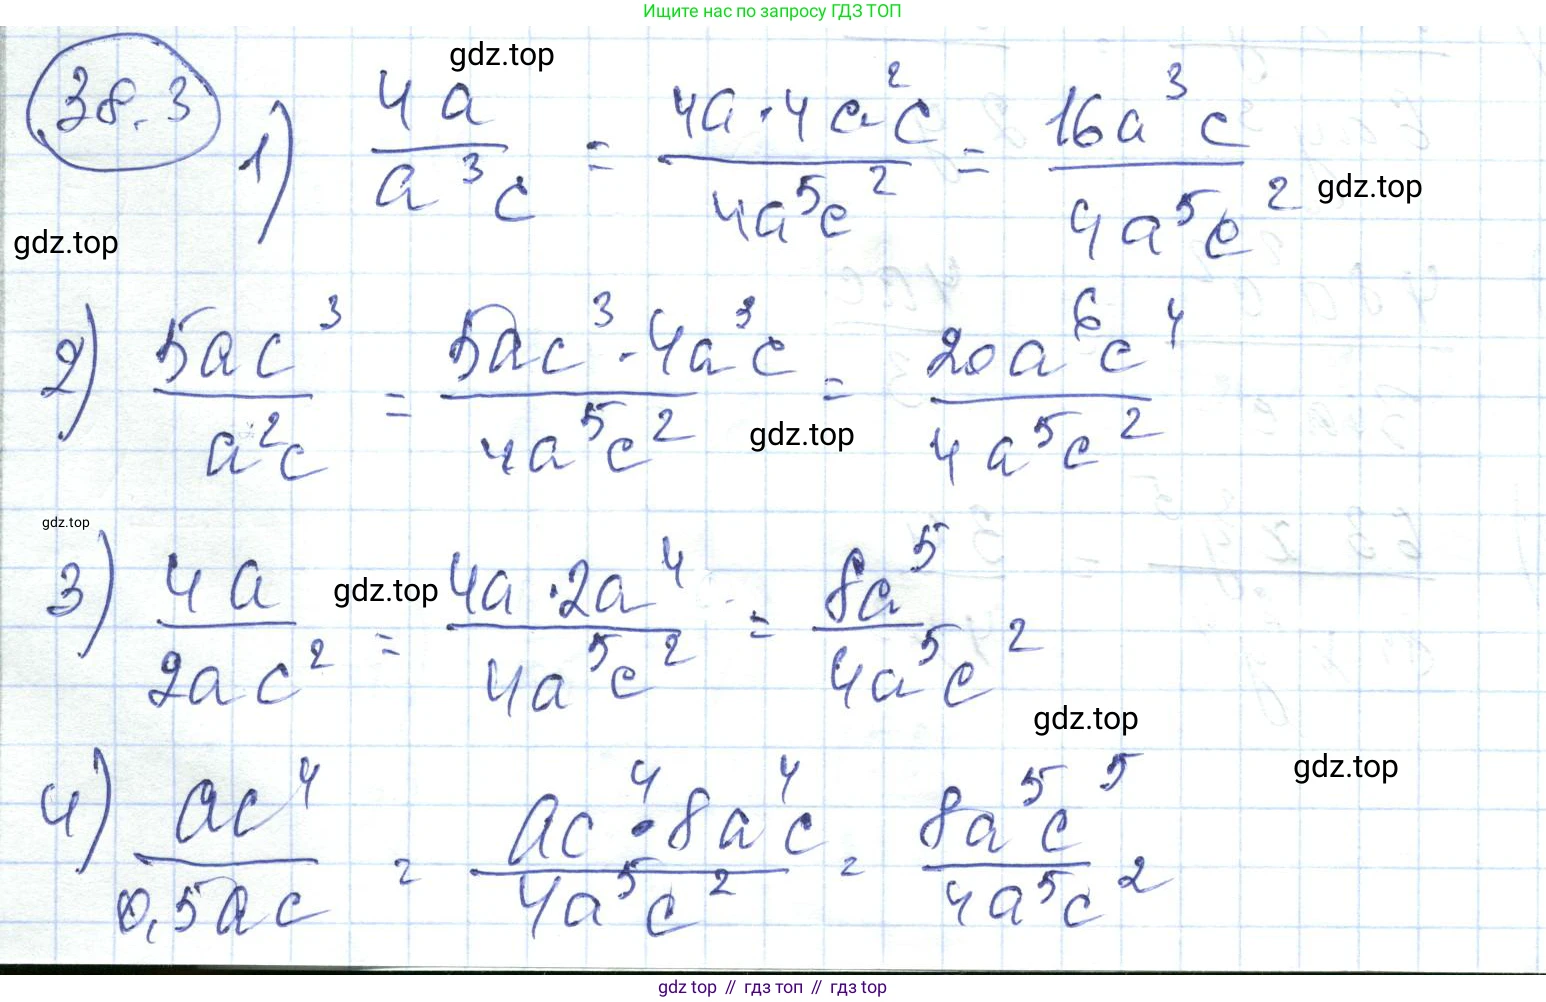 Ищите нас по запросу ГДЗ ТОП
38.3
gdz.top
1) \frac{4a}{a^3c} = \frac{4a·4a^2c}{4a^5c^2} = \frac{16a^3c}{4a^5c^2}
gdz.top
gdz.top
2) \frac{5ac^3}{a^2c} = \frac{5ac^3·4a^3c}{4a^5c^2} = \frac{20a^6c^4}{4a^5c^2}
gdz.top
gdz.top
3) \frac{4a}{2ac^2} = \frac{4a·2a^4}{4a^5c^2} = \frac{8a^5}{4a^5c^2}
gdz.top
gdz.top
gdz.top
4) \frac{ac^4}{0,5ac} = \frac{ac^4·8a^4c}{4a^5c^2} = \frac{8a^5c^5}{4a^5c^2}
gdz top // гдз топ // гдз top